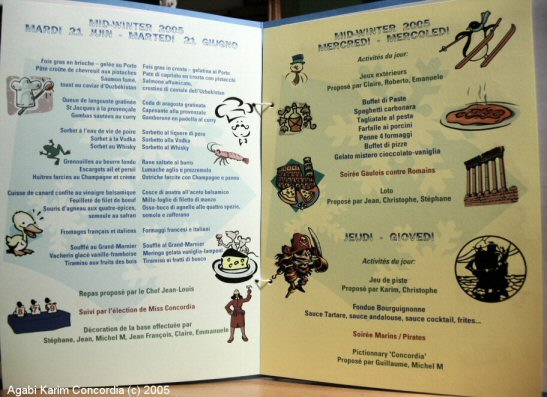 MID-WINTER 2005
MARDI 21 JUIN - MARTEDI 21 GIUGNO
Foie gras en brioche - gelée au Porto
Pâté croûte de chevreuil aux pistaches
Saumon fumé,
toast au caviar d'Ouzbékistan
Foie gras in crosta - gelatina al Porto
Pate di capriolo en crosta con pistacchi
Salmone affumicato,
crostino di caviale dell'Uzbekistan
Queue de langouste gratinée
St Jacques à la provençale
Gambas sautées au curry
Coda di aragosta gratinata
Capesante alla provenzale
Gamberone en padella al curry
Sorbet à l'eau de vie de poire
Sorbet à la Vodka
Sorbet au Whisky
Sorbetto al liquore di pera
Sorbetto alla Vodka
Sorbetto al Whisky
Grenouilles au beurre fondu
Escargots ail et persil
Huîtres farcies au Champagne et crème
Rane saltate al burro
Lumache aglio e prezzemolo
Ostriche farcite con Champagne e panna
Cuisse de canard confite au vinaigre balsamique
Feuilleté de filet de boeuf
Souris d'agneau aux quatre-épices,
semoule au safran
Cosce di anatra all'aceto balsamico
Mille-foglie di filetto di manzo
Osso-buco di agnello alle quattro spezie,
semola e zafferano
Fromages français et italiens
Formaggi francesi e italiani
Soufflé au Grand-Marnier
Vacherin glacé vanille-framboise
Tiramisu aux fruits des bois
Souffle al Grand-Marnier
Meringa gelata vaniglia-lamponi
Tiramisu ai frutti di bosco
Repas proposé par le Chef Jean-Louis
Suivi par l'élection de Miss Concordia
Décoration de la base effectuée par
Stéphane, Jean, Michel M, Jean François, Claire, Emmanuele
8 7 9
MID-WINTER 2005
MERCREDI - MERCOLEDI
Activités du jour:
Jeux extérieurs
Proposé par Claire, Roberto, Emanuele
Buffet di Paste
Spaghetti carbonara
Tagliatale al pesta
Farfalle ai porcini
Penne 4 formaggi
Buffet di pizze
Gelato mistero cioccolato-vaniglia
Soirée Gaulois contre Romains
Loto
Proposé par Jean, Christophe, Stéphane
JEUDI - GIOVEDI
Activités du jour:
Jeu de piste
Proposé par Karim, Christophe
Fondue Bourguignonne
Sauce Tartare, sauce andalouse, sauce cocktail, frites...
Soirée Marins / Pirates
Pictionnary 'Concordia'
Proposé par Guillaume, Michel M
Agabi Karim Concordia (c) 2005